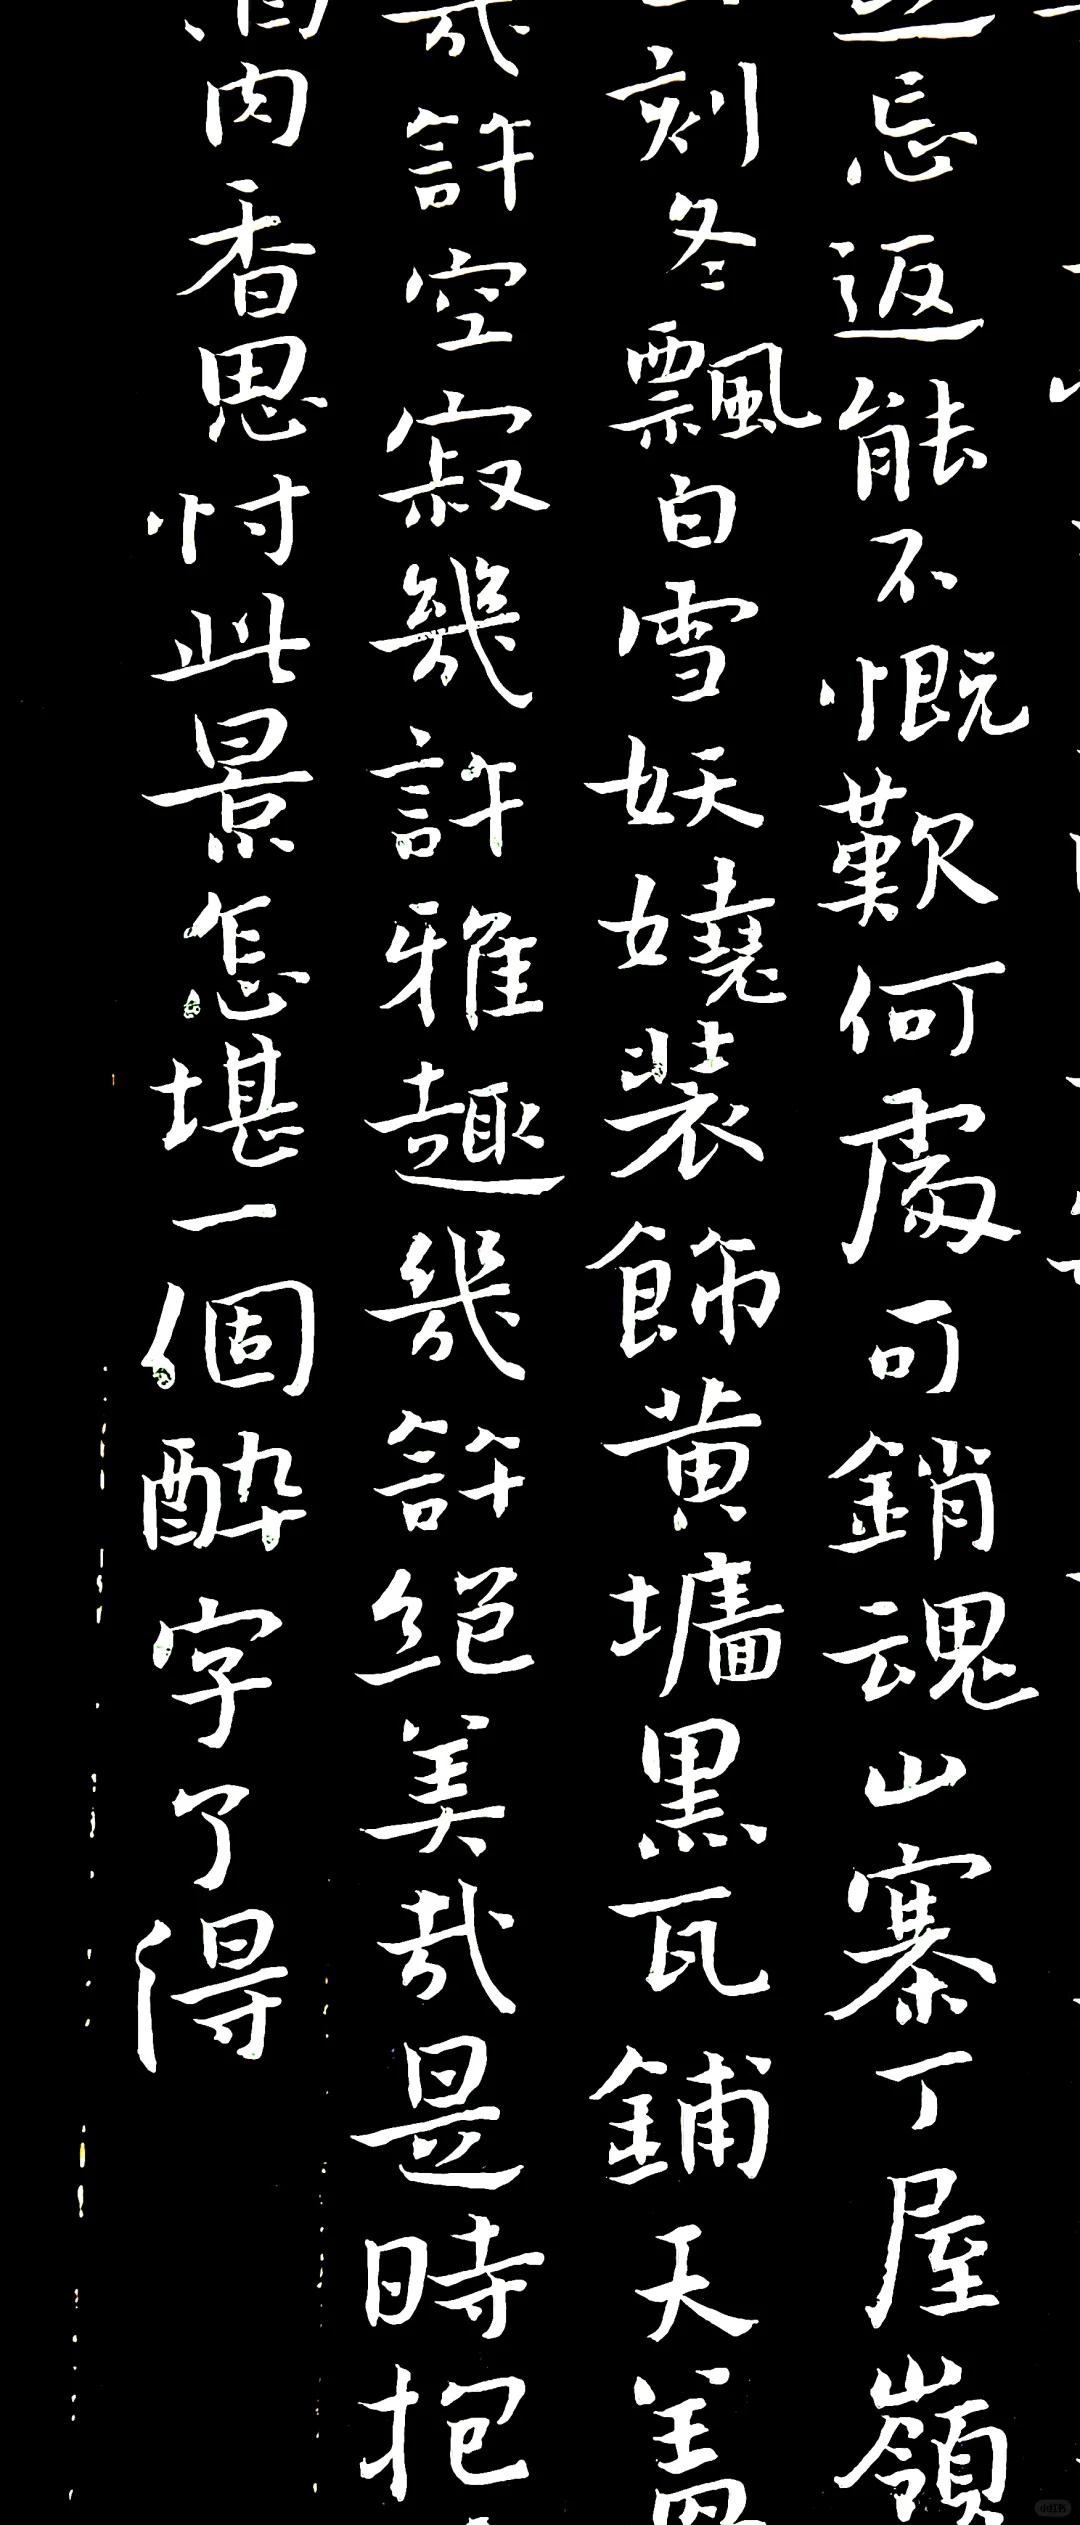 忘返能不慨歎何處可銷魂山寨丁屋嶺
刻冬飄白雪妖嬈裝飾黃墻黑瓦鋪天蓋
幾許空寂幾許雅趣幾許絕美哉是時抱
肉香思忖此景怎堪一個醉字了得